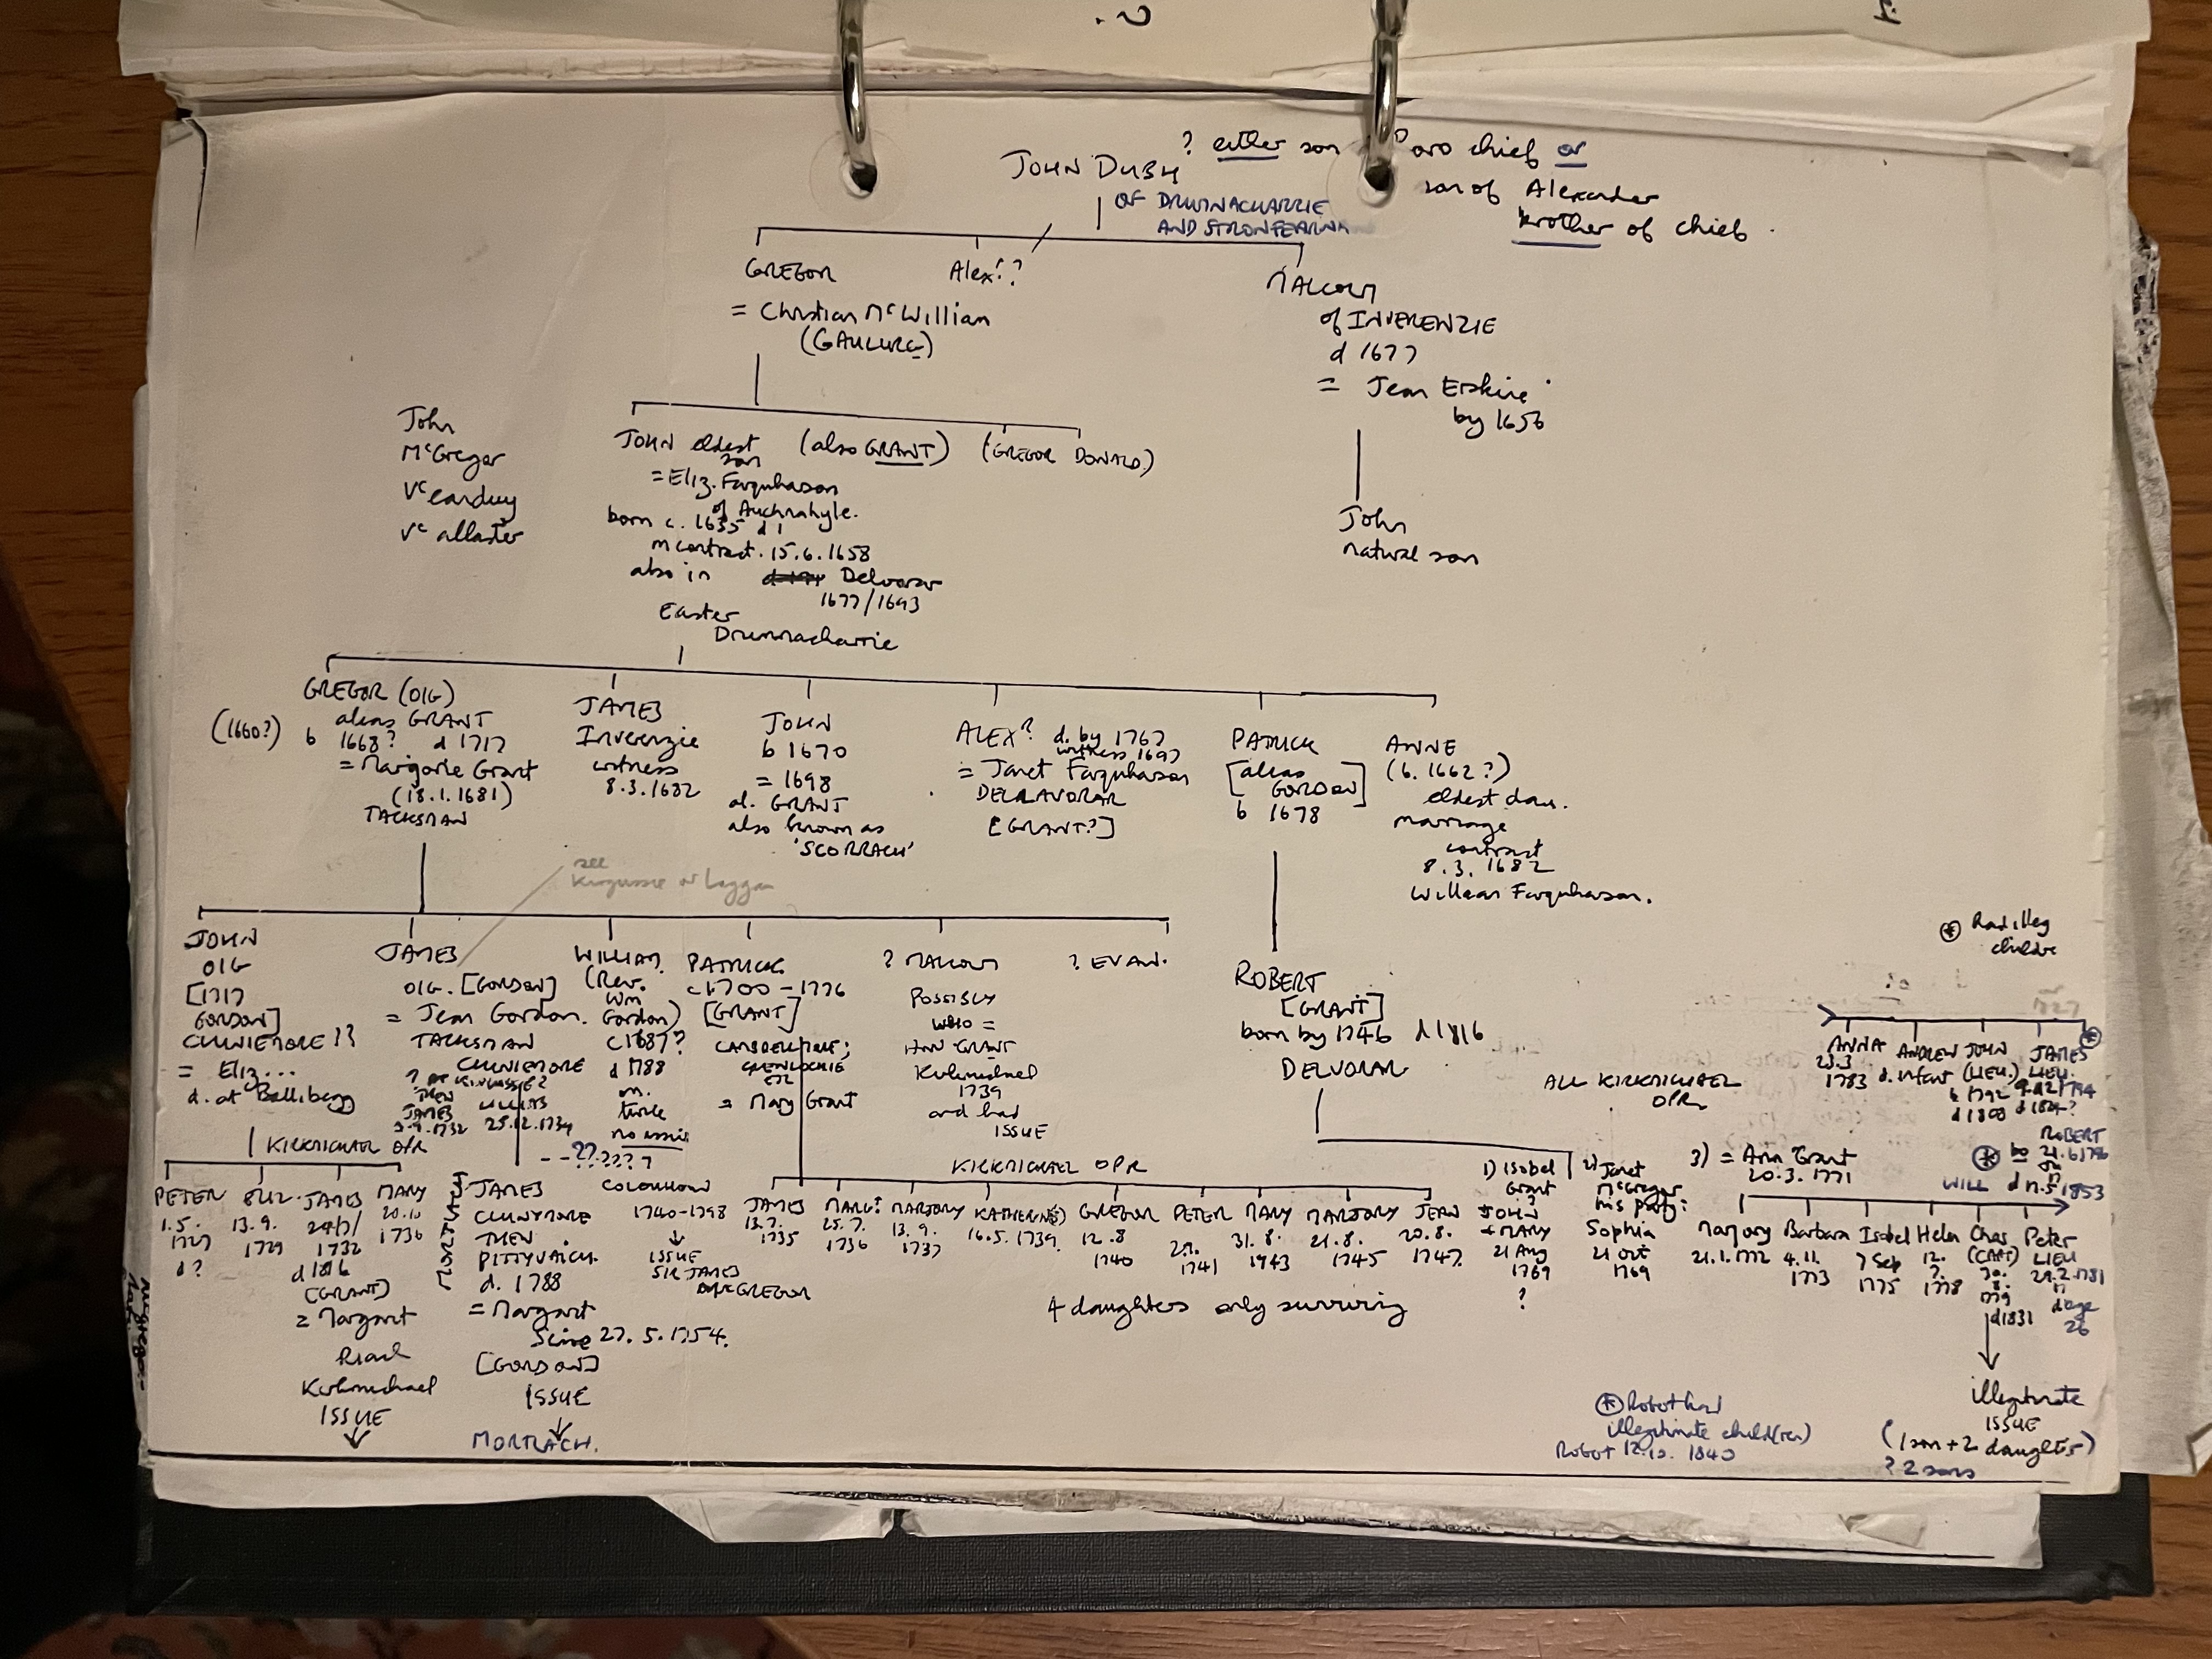 ? either son
chief or
JOHN DUBH
son of Alexander
OF DRUINACHARRIE
AND STRONFEARNA
brother of chief.
GREGOR
Alexr?
MALCOLM
= Christian McWillian
of INVERENZIE
(GAULURG)
d 1677
= Jean Erskine
by 1656
John
McGregor
Vc earduy
Vc allaster
JOHN eldest
son
(also GRANT)
(GREGOR DONALD)
= Eliz. Farquharson
of Auchnahyle.
born c. 1635 d 1
m contract. 15.6.1658
also in
Delvorar
1677/1693
Easter
Drumnacharrie
John
natural son
GREGOR (OIG)
alias GRANT
(1660?) b 1668? d 1717
= Margorie Grant
(18.1.1681)
TACKSMAN
JAMES
Inverenzie
witness
8.3.1682
JOHN
b 1670
= 1698
al. GRANT
also known as
'SCORRACH'
ALEXR d. by 1767
witness 1697
= Janet Farquharson
DELLAVORAR
[GRANT?]
PATRICK
[alias
GORDON]
b 1678
ANNE
(b. 1662?)
eldest dau.
marriage
contract
8.3.1682
William Farquharson.
see
Kingussie or Laggan
JOHN
OIG
[1717
GORDON]
CLUNIEMORE ??
= Eliz...
d. at Ballibegg
JAMES
OIG. [GORDON]
= Jean Gordon.
TACKSMAN
CLUNIEMORE
JAMES
25.12.1734
WILLIAM
(Rev.
Wm
Gordon)
c 1687?
d 1788
m.
twice
no issue
PATRICK
c 1700 - 1776
[GRANT]
GLENLOCHIE
ETC
= Mary Grant
? MALCOLM
POSSIBLY
WHO =
ANN GRANT
Kirkmichael
1739
and had
ISSUE
? EVAN.
ROBERT
[GRANT]
born by 1746 d 1816
DELVORAR
ALL KIRKMICHAEL
OPR.
* Rad illeg
childre
ANNA
23.3
1783
ANDREW
d. infant
JOHN
(LIEU.)
b 1792
d 1808
JAMES *
LIEU.
KIRKMICHAEL OPR
PETER
1.5.
1727
d?
ELIZ.
13.9.
1729
JAMES
1732
d 1816
(GRANT)
= Margaret
Riach
Kirkmichael
ISSUE
MARY
20.10
1736
MORTLACH
JAMES
CLUNYMORE
THEN
PITTYVAICH.
d. 1788
= Margaret
27.5.1754.
[GORDON]
ISSUE
MORTLACH.
--?????
COLQUHOUN
1740-1798
ISSUE
SIR JAMES
McGREGOR
KIRKMICHAEL OPR
JAMES
13.7.
1735
MARGT
25.7.
1736
MARJORY
13.9.
1737
KATHERINE
16.5.1739.
GREGOR
12.8
1740
PETER
1741
MARY
31.8.
1743
MARJORY
21.8.
1745
JEAN
20.8.
1747.
4 daughters only surviving
1) Isobel
Grant
?
JOHN
+ MARY
21 Aug
1769
?
2) Janet
McGregor
his party:
Sophia
21 Oct
1769
3) = Ann Grant
20.3.1771
Marjory
21.1.1772
Barbara
4.11.
1773
Isobel
7 Sep
1775
Helen
12.
?.
1778
Chas
(CAPT)
30.
8.
1779
d 1831
Peter
LIEU
29.2.1781
d age
26
ROBERT
* b
21.6.1796
WILL d 17.5.1853
illegitimate
ISSUE
(1 son + 2 daughters)
? 2 sons
* Robert had
illegitimate child(ren)
Robert 12.10.1840